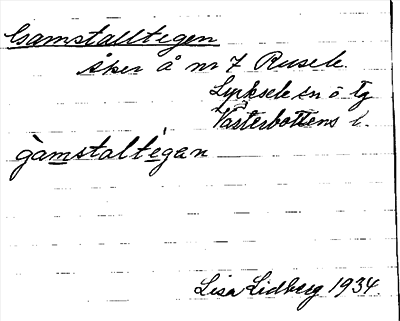 Gamstalltegen
åker å nr 7 Rusele
Lycksele sn o tg
Västerbottens l.
gàmstaltègan
Lisa Lidberg 1934